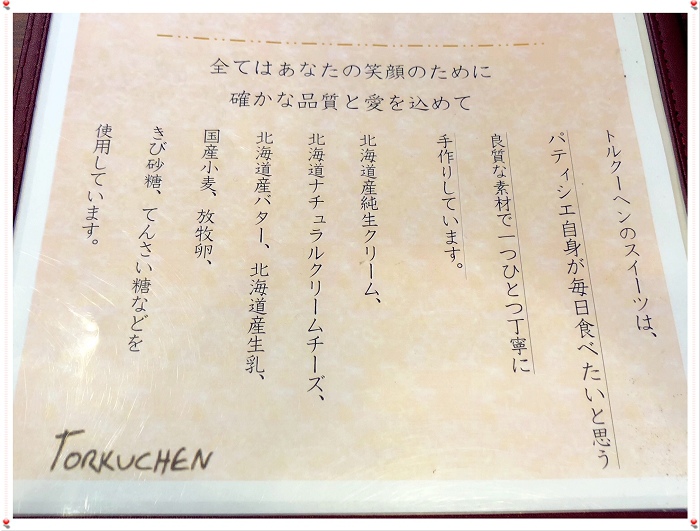 全てはあなたの笑顔のために
確かな品質と愛を込めて
トルクーヘンのスイーツは、
パティシエ自身が毎日食べたいと思う
良質な素材で一つひとつ丁寧に
手作りしています。
北海道産純生クリーム、
北海道ナチュラルクリームチーズ、
北海道産バター、北海道産生乳、
国産小麦、放牧卵、
きび砂糖、てんさい糖などを
使用しています。
TORKUCHEN